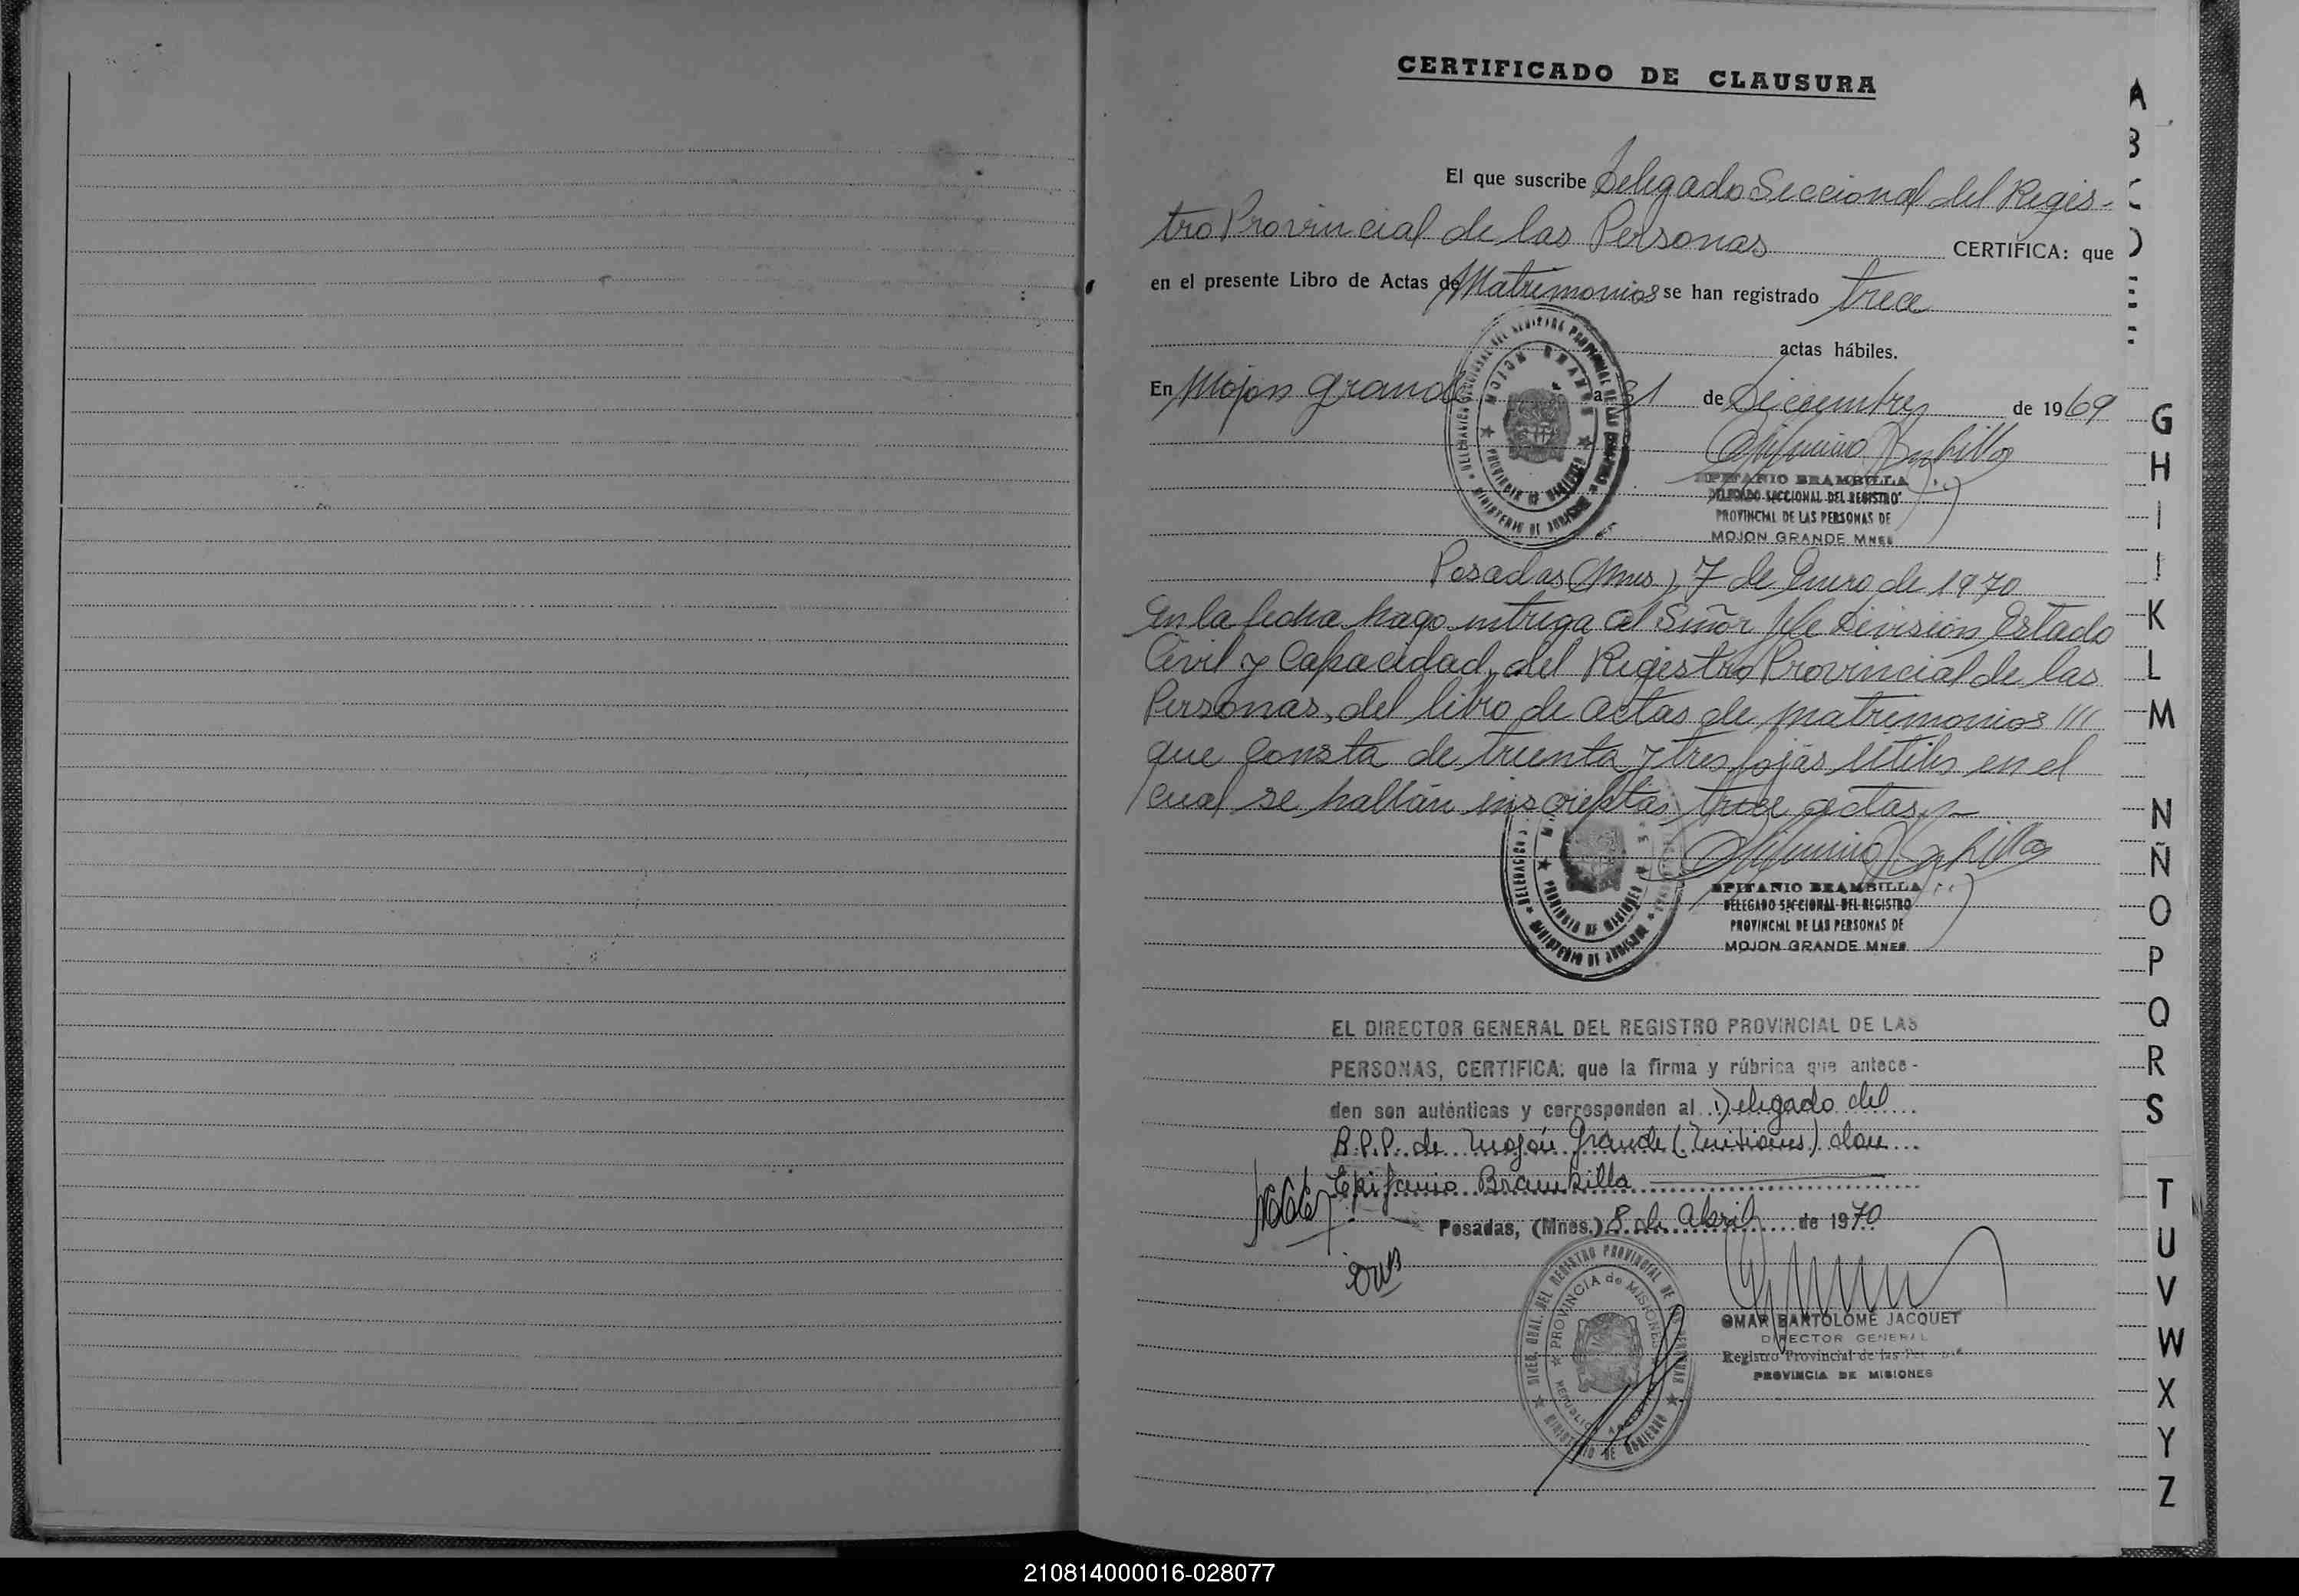 CERTIFICADO DE CLAUSURA
El que suscribe Delegado Seccional del Regis-
tro Provincial de las Personas CERTIFICA: que
en el presente Libro de Actas de Matrimonios se han registrado trece
actas hábiles.
En Mojon Grande a 31 de Diciembre de 1969
EPIFANIO BRAMBILLA
DELEGADO SECCIONAL DEL REGISTRO
PROVINCIAL DE LAS PERSONAS DE
MOJON GRANDE MNES
Posadas (Mnes), 7 de Enero de 1970
En la fecha hago entrega al Señor Jefe División Estado
Civil y Capacidad, del Registro Provincial de las
Personas, del libro de actas de matrimonios ///
que consta de treinta y tres fojas utiles en el
cual se hallan inscriptas trece actas.-
EPIFANIO BRAMBILLA
DELEGADO SECCIONAL DEL REGISTRO
PROVINCIAL DE LAS PERSONAS DE
MOJON GRANDE MNES
EL DIRECTOR GENERAL DEL REGISTRO PROVINCIAL DE LAS
PERSONAS, CERTIFICA: que la firma y rúbrica que antece-
den son auténticas y corresponden al Delegado del
R.P.P. de Mojón Grande (Misiones) don
Epifanio Brambilla
Posadas, (Mnes.) 8 de Abril de 1970
DIREC. GRAL. DEL REGISTRO PROVINCIAL DE LAS PERSONAS
PROVINCIA de MISIONES
REPUBLICA ARGENTINA
MINISTERIO DE GOBIERNO
OMAR BARTOLOME JACQUET
DIRECTOR GENERAL
Registro Provincial de las Personas
PROVINCIA DE MISIONES
A
B
C
D
E
F
G
H
I
J
K
L
M
N
Ñ
O
P
Q
R
S
T
U
V
W
X
Y
Z
210814000016-028077